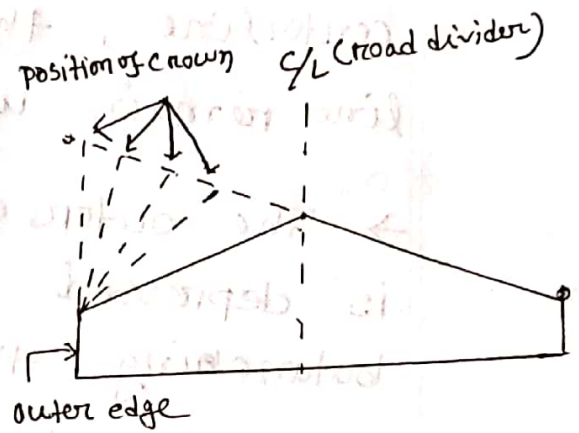 position of crown
C/L (road divider)
outer edge